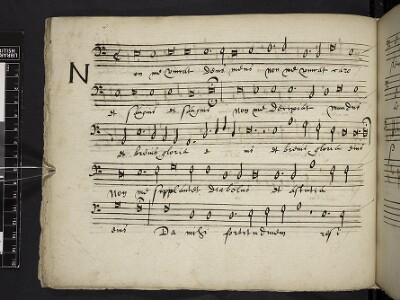 Non me vincat deus meus non me vincat caro
et sanguis et sanguis non me decipiat mundus
et brevis gloria e ius et brevis gloria eius
Non me supplantet diabolus et astutia
eius Da mihi fortitudinem resi